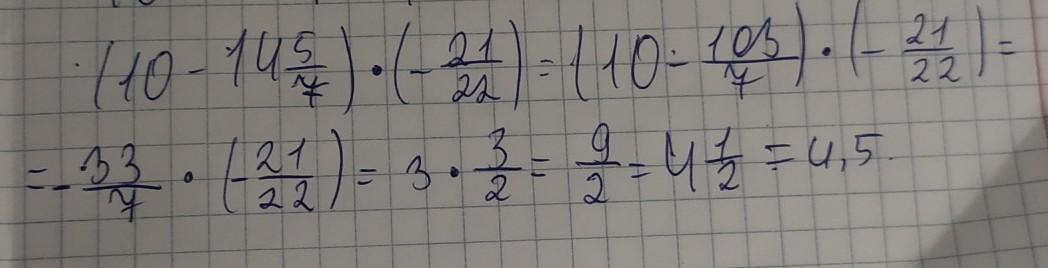 (10 - 14 5/7) · (- 21/22) = (10 - 103/7) · (- 21/22) =
= - 33/7 · (- 21/22) = 3 · 3/2 = 9/2 = 4 1/2 = 4,5.